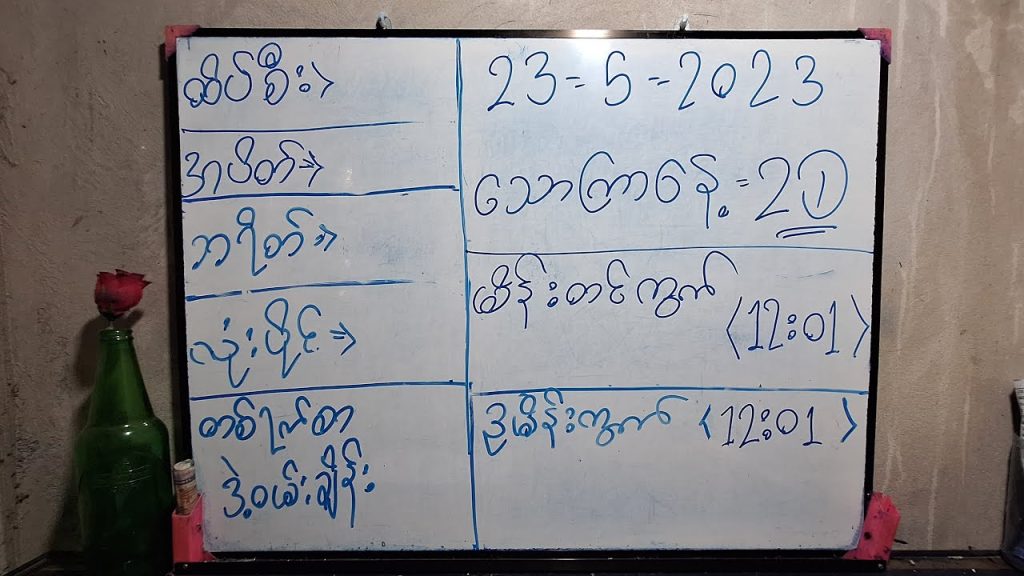 ထိပ်စီး>
အပိတ်⇒
ဘရိတ်⇒
လုံးပိုင်⇒
တစ်ရက်စာ
ဒဲ့ဝမ်းချိန်း
23-5-2023
သောကြာနေ့=2①
ထိန်းတင်ကွက်
<12:01>
ဒွထိန်းကွက် <12:01>